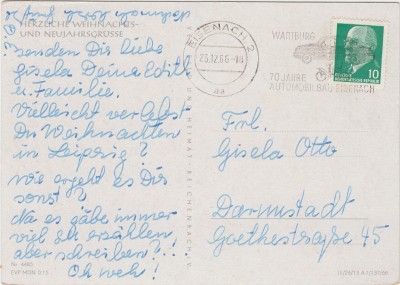 HERZLICHE WEIHNACHTS-
UND NEUJAHRSGRÜSSE
senden Dir liebe
Gisela Deine Edith
u. Familie.
Vielleicht verlebst
Du Weihnachten
in Leipzig?
Wie ergeht es Dir
sonst?
Na es gäbe immer
viel zu erzählen,
aber schreiben?...
Oh weh!
Nr. 4440
EVP MDN 0,15
EISENACH 2
23.12.66-18
aa
WARTBURG
70 JAHRE
AUTOMOBILBAU EISENACH
10
Frau
Gisela Otto
Darmstadt
Goethestraße 45